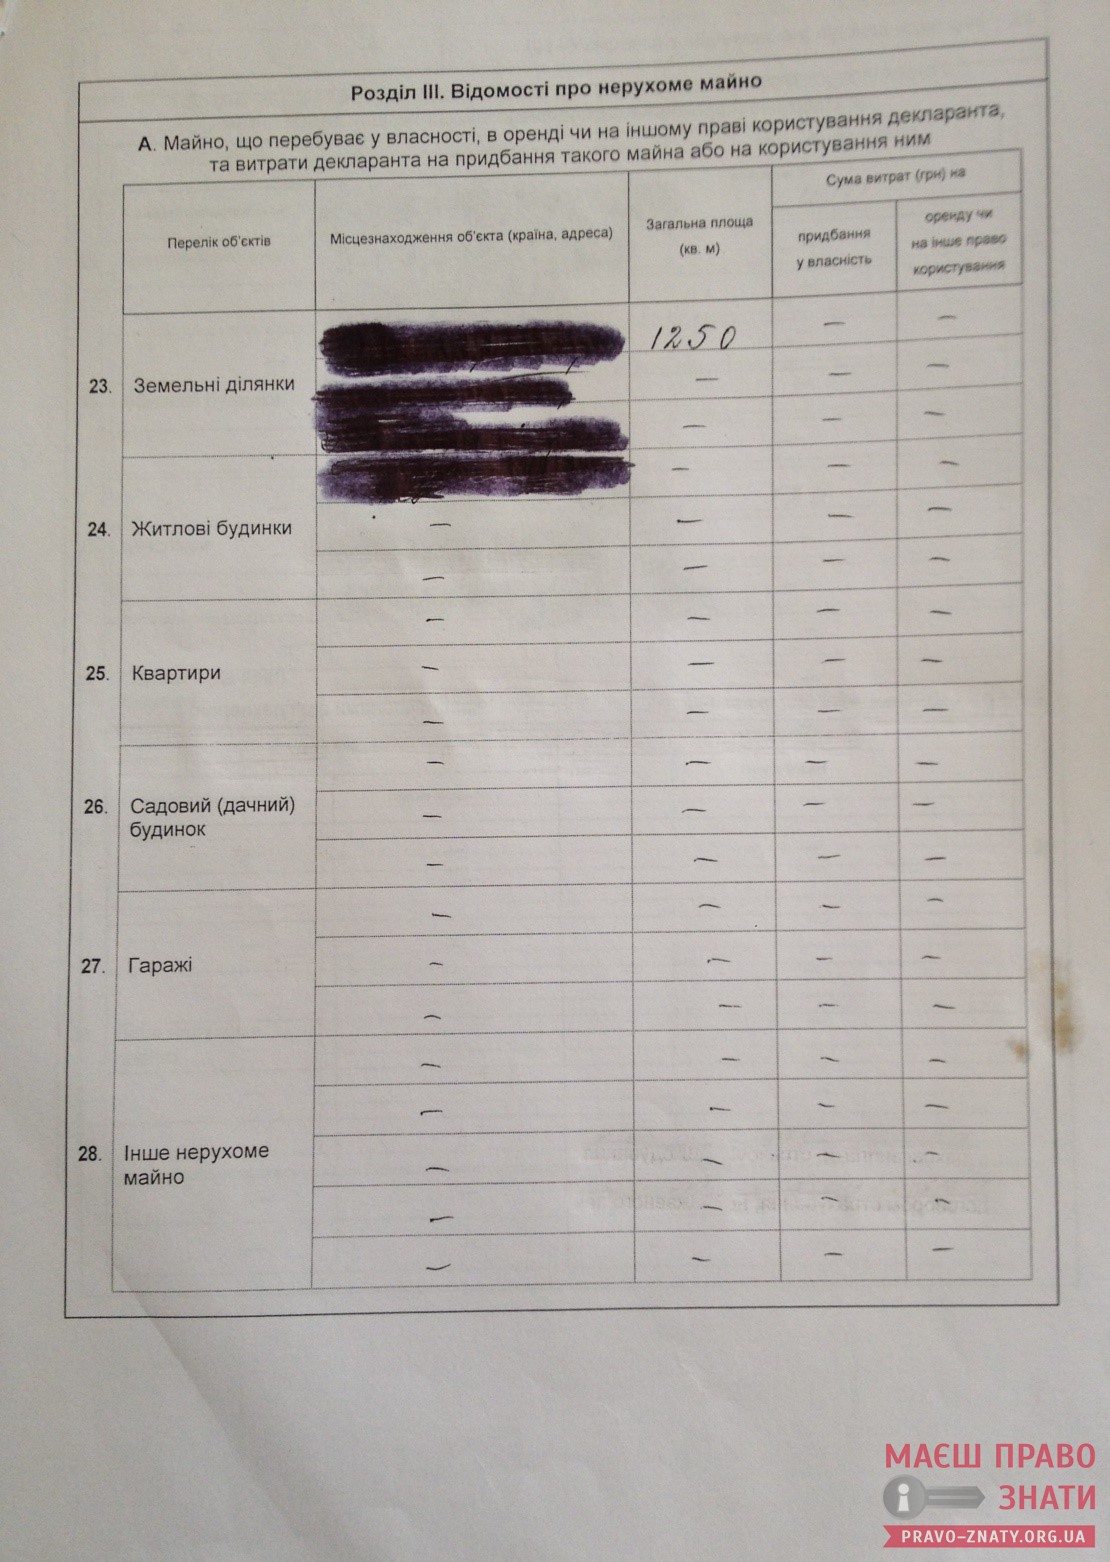 Розділ III. Відомості про нерухоме майно
А. Майно, що перебуває у власності, в оренді чи на іншому праві користування декларанта,
та витрати декларанта на придбання такого майна або на користування ним
Перелік об'єктів
Місцезнаходження об'єкта (країна, адреса)
Загальна площа
(кв. м)
Сума витрат (грн) на
придбання
у власність
оренду чи
на інше право
користування
23. Земельні ділянки
1250
— —
— — —
— — —
24. Житлові будинки
— — —
— — — —
— — — —
25. Квартири
— — — —
— — — —
— — — —
26. Садовий (дачний)
будинок
— — — —
— — — —
— — — —
27. Гаражі
— — — —
— — — —
— — — —
28. Інше нерухоме
майно
— — — —
— — — —
— — — —
— — — —
— — — —
МАЄШ ПРАВО
ЗНАТИ
PRAVO-ZNATY.ORG.UA